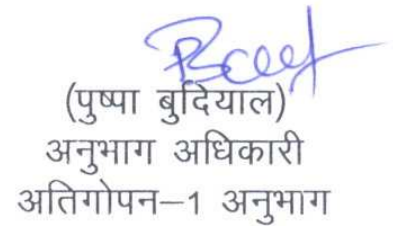 (पुष्पा बुदियाल)
अनुभाग अधिकारी
अतिगोपन–1 अनुभाग